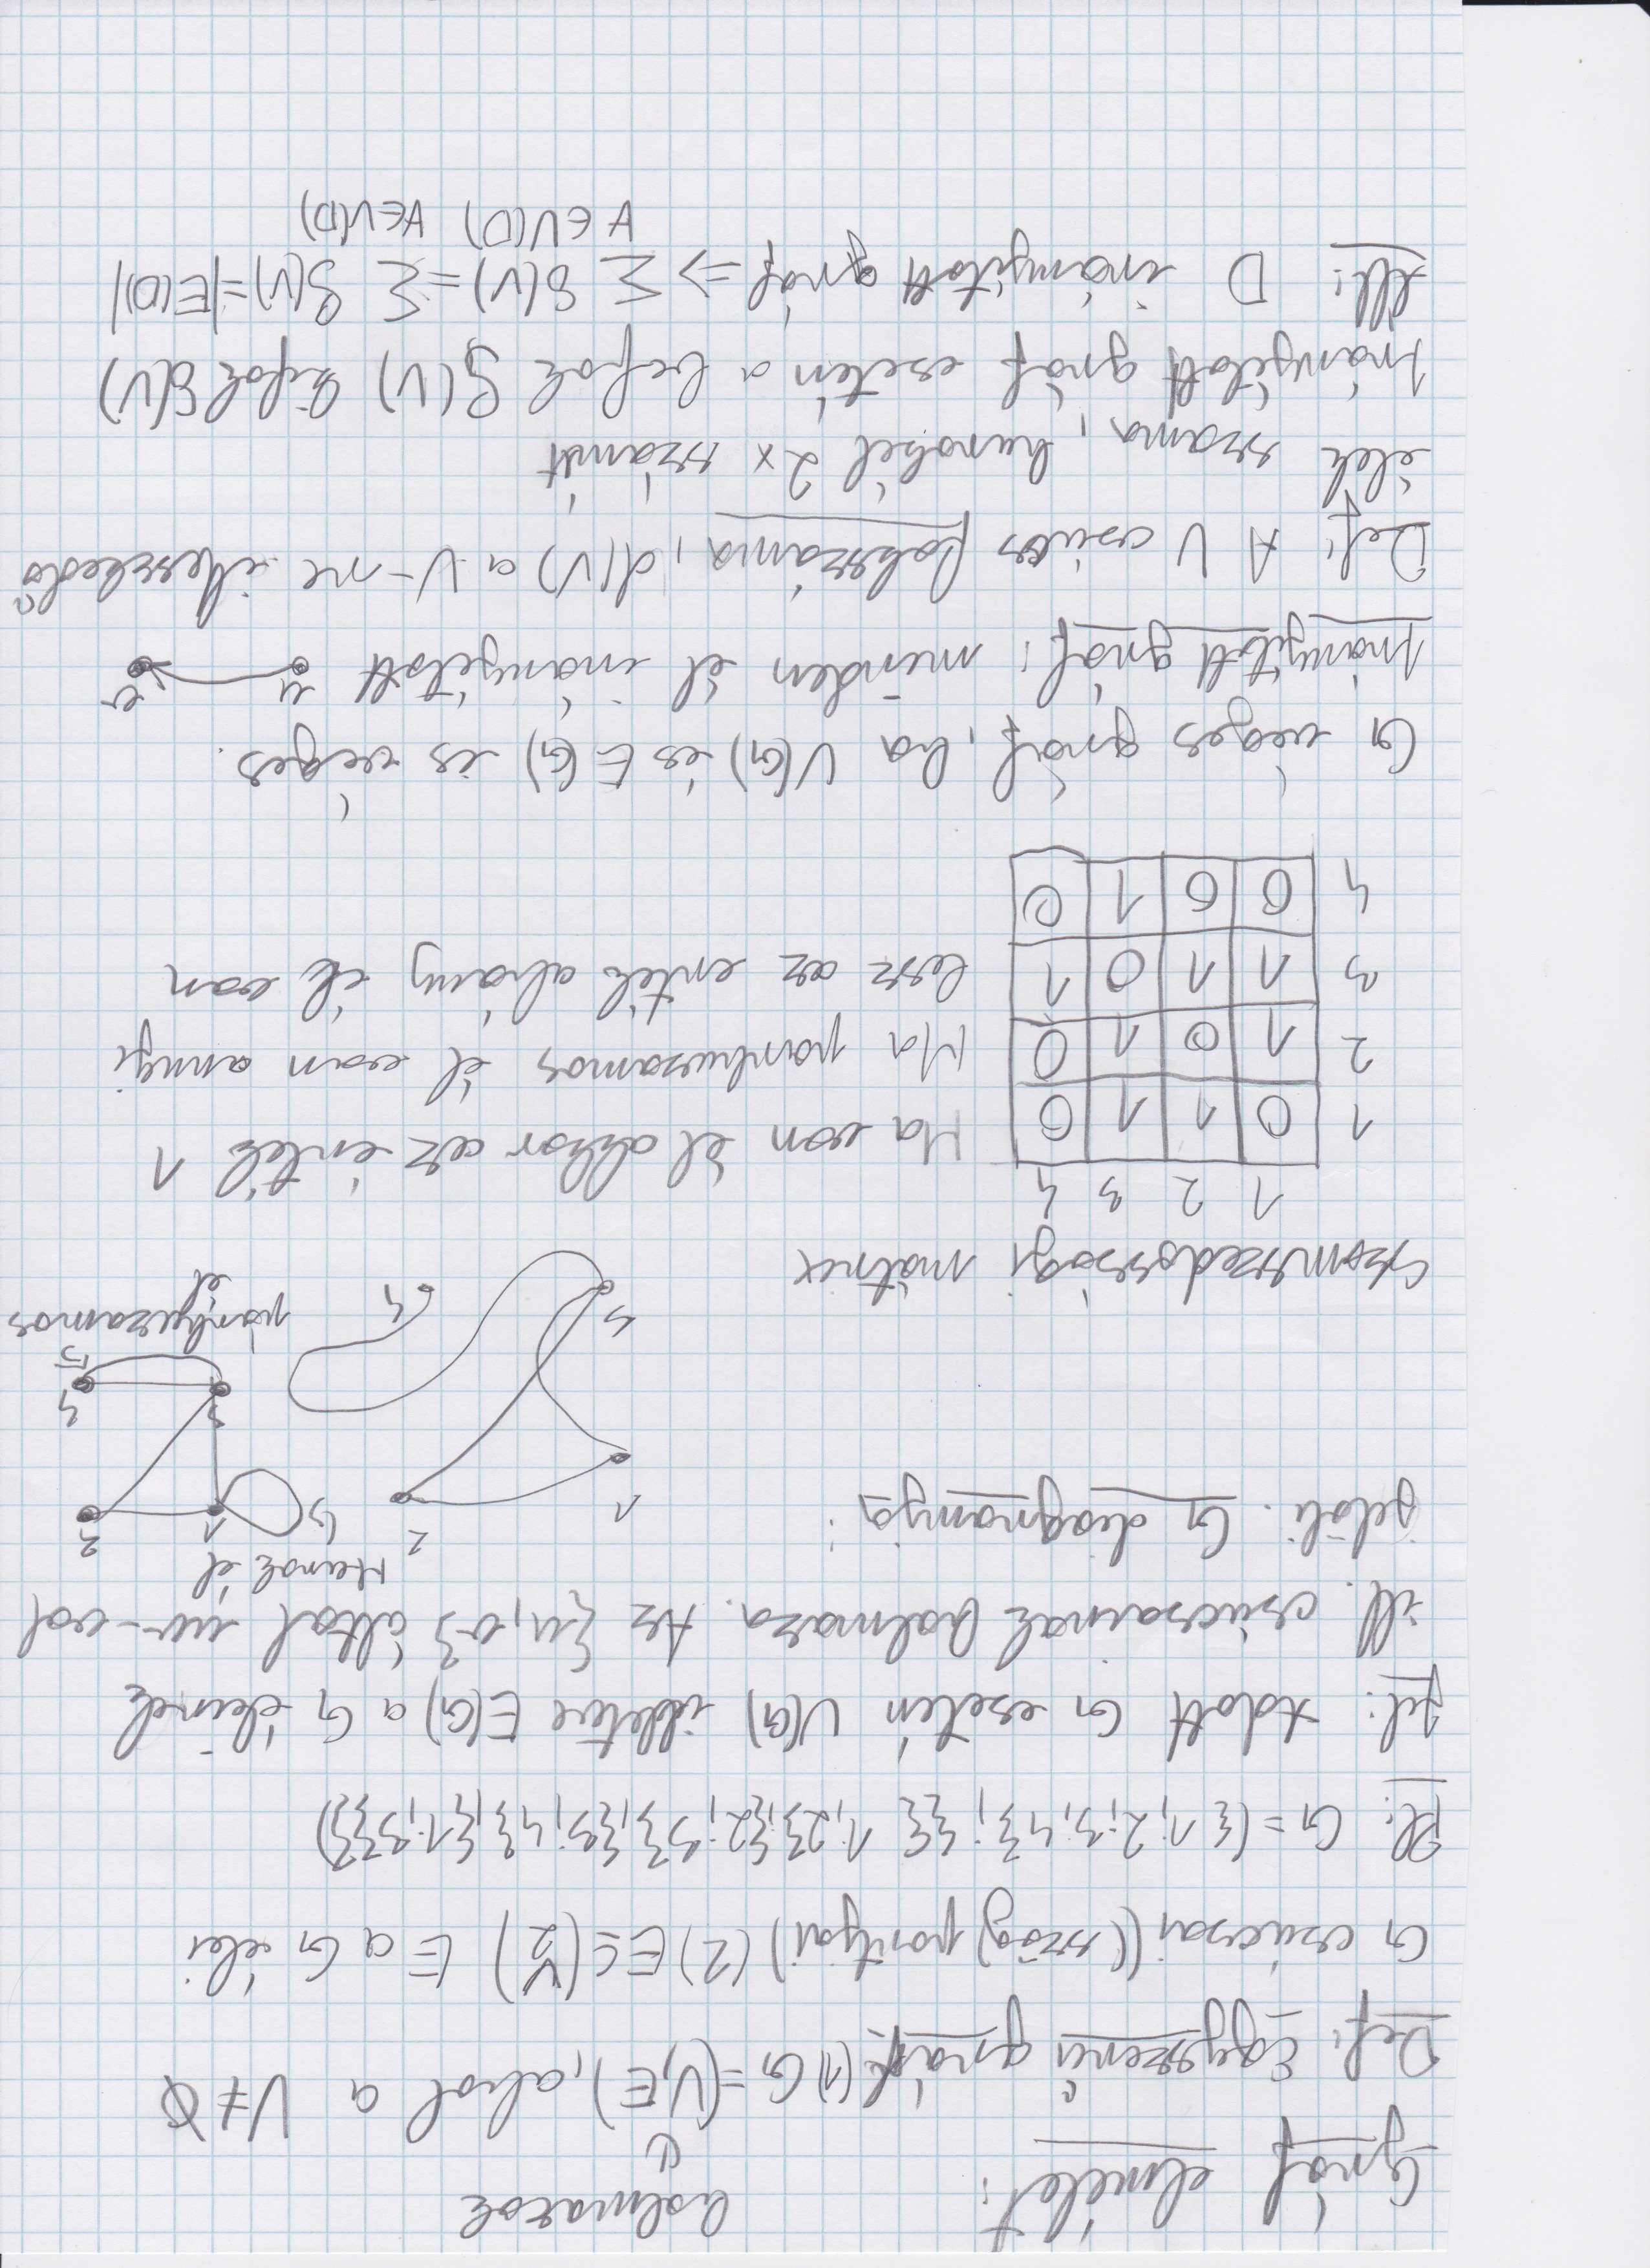 Gráf elmélet:
halmazok
Def: Egyszerű gráf: (1) G=(V,E), ahol a V≠∅
G csúcsai (szög pontjai) (2) E⊆(V 2) E a G élei
Pl: G=({1;2;3;4};{{1;2};{2;3};{3;4};{1;3}})
Jel: Adott G esetén V(G) illetve E(G) a G éleinek
ill. csúcsainak halmaza. Az {u,v} által uv-vel
jelöli. G diagramja:
Hurok él
1 2 3 4
1 2 3 4 5
párhuzamos
él
Szomszédossági mátrix
1 2 3 4
1 0 1 1 0
2 1 0 1 0
3 1 1 0 1
4 0 0 1 0
Ha van él akkor az érték 1
Ha párhuzamos él van annyi
lesz az érték ahány él van
G véges gráf, ha V(G) és E(G) is véges.
Irányított gráf: minden él irányított u v
Def: A V csúcs fokszáma, d(V) a V-re illeszkedő
élek száma, hurokél 2x számít
Irányított gráf esetén a befok ϱ(V) kifok δ(V)
Áll: D irányított gráf => Σ δ(V) = Σ ϱ(V) = |E(D)|
∀∈V(D) ∀∈V(D)